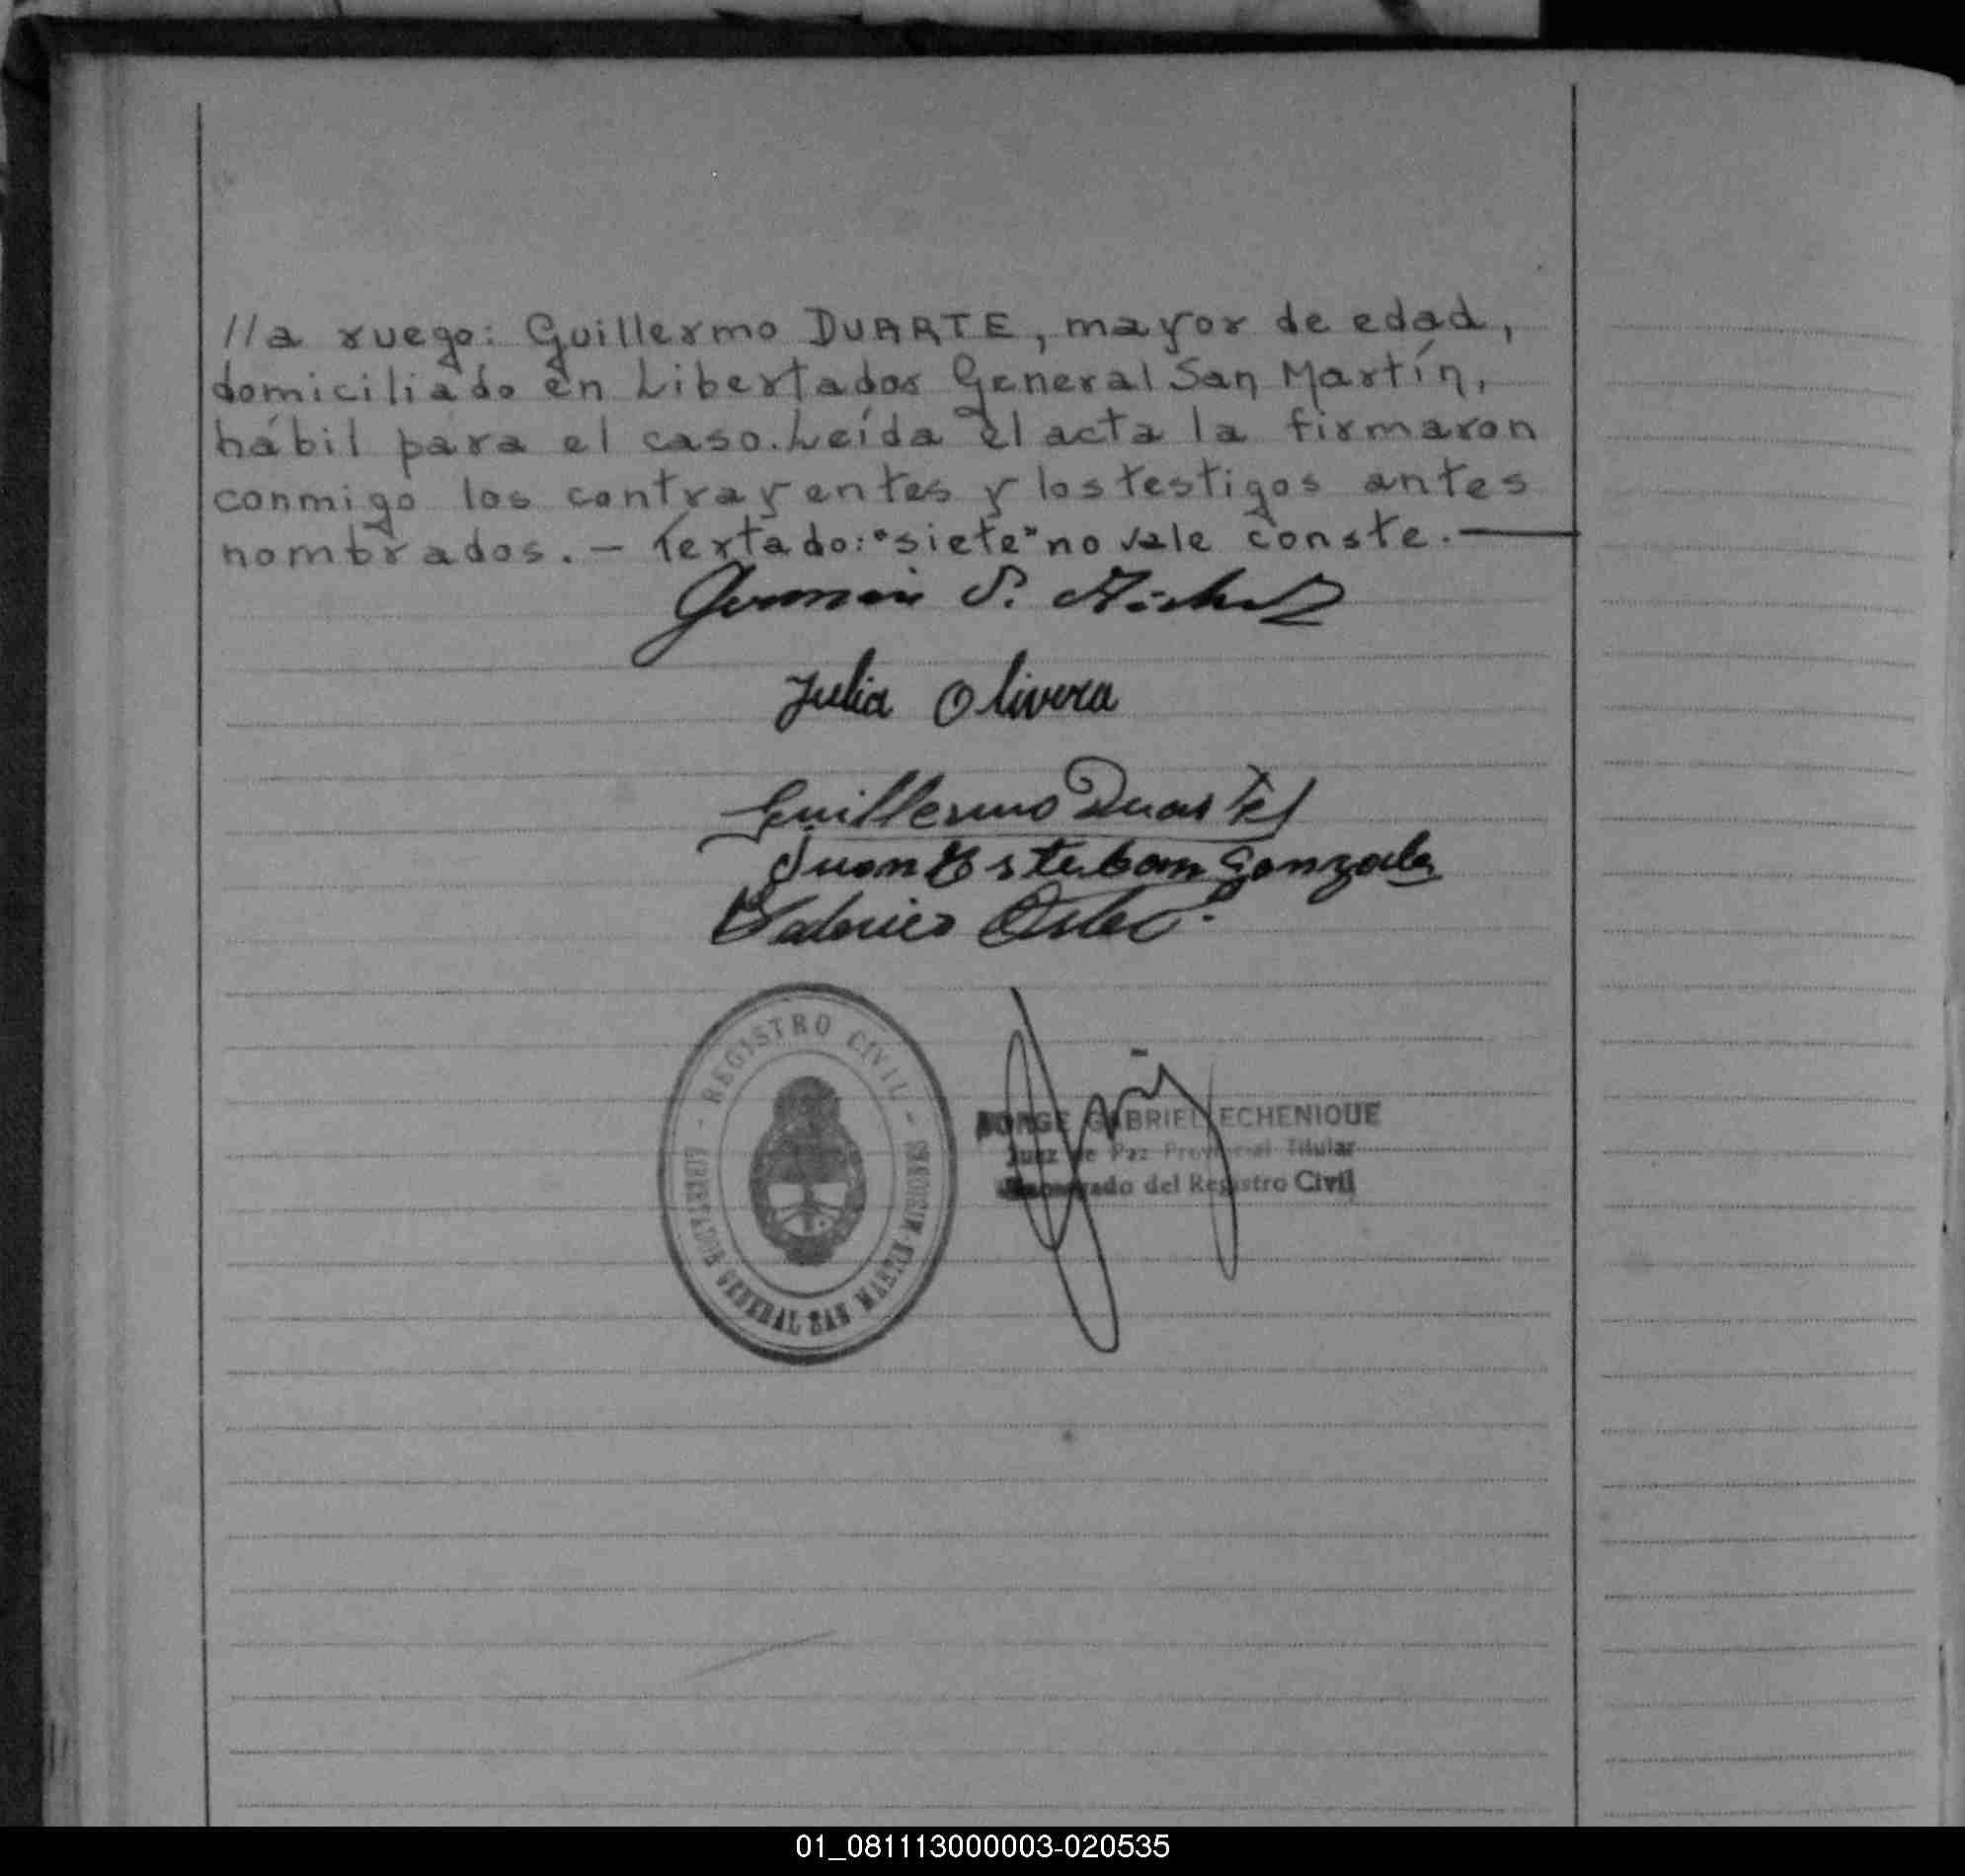 //a ruego: Guillermo DUARTE, mayor de edad,
domiciliado en Libertador General San Martín,
hábil para el caso. Leída el acta la firmaron
conmigo los contrayentes y los testigos antes
nombrados. — Textado: "siete" no vale conste. —
Julia Olivera
Guillermo Duarte
Juan Esteban Gonzale
REGISTRO CIVIL
LIBERTADOR GENERAL SAN MARTIN MISIONES
JORGE GABRIEL ECHENIQUE
Juez de Paz Provincial Titular
Encargado del Registro Civil
01_081113000003-020535